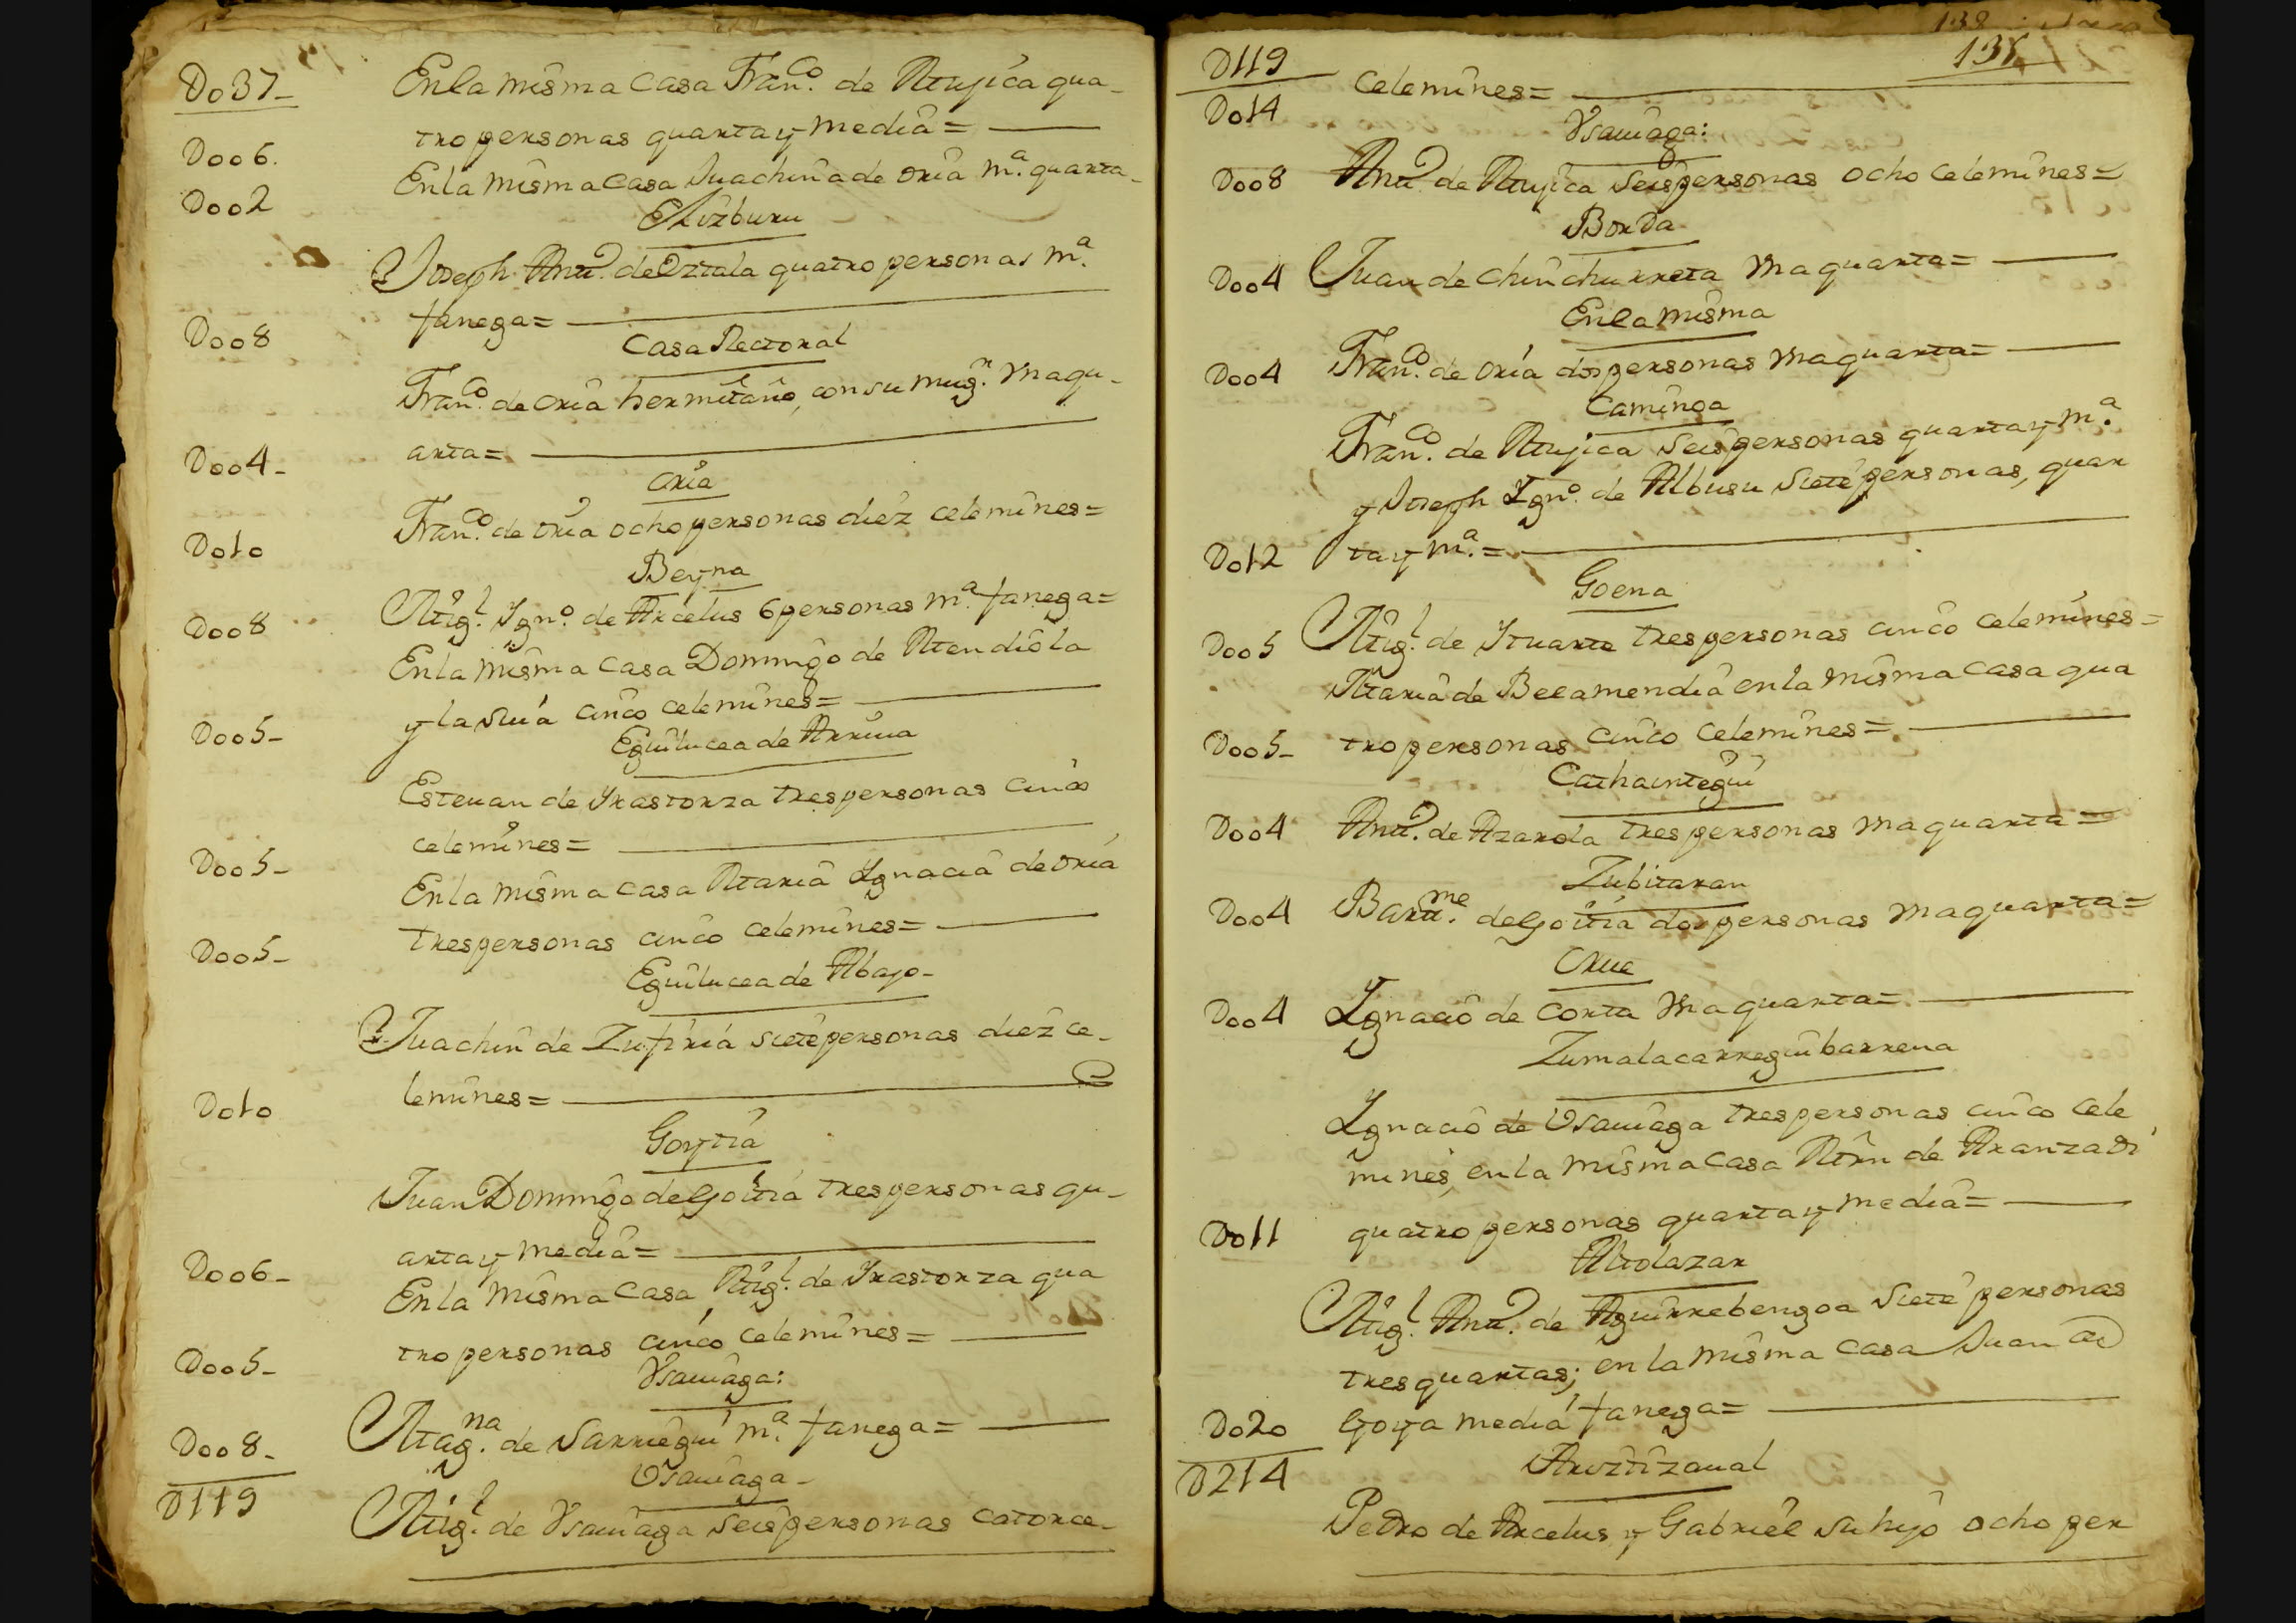 Do37_
En la misma Casa Fran.co de Mujica qua_
Doo6.
tro personas quarta y media= ——
Doo2
En la misma Casa Juachina de oria m.a quarta_
Elizburu
Joseph Antt.o de Oztala quatro personas m.a
Doo8
fanega= ——
Casa Rectoral
Fran.co de oria hermitaño, con su mug.r Maqu_
Doo4_
arta= ——
oria
Do1o
Fran.co de oria ocho personas diez celemines=
Beyna
Doo8
Mig.l Ygn.o de Arcelus 6 personas m.a fanega=
En la misma Casa Domingo de Mendiola
Doo5_
y la suia cinco celemines= ——
Eguilucea de Arriua
Esteuan de Yrastorza tres personas cinco
Doo5_
celemines= ——
En la misma Casa Maria Ygnacia de oria
Doo5_
tres personas cinco celemines= ——
Eguilucea de Abajo_
Juachin de Zufiria siete personas diez ce_
Do1o
lemines= ——
Goytia
Juan Domingo de Goitia tres personas qu_
Doo6_
arta y media= ——
En la misma Casa Mig.l de Yrastorza qua
Doo5_
tro personas cinco celemines= ——
Vsauiaga:
Doo8_
Mag.na de Sarriegui m.a fanega= ——
D119
Vsauiaga_
Mig.l de Vsauiaga seis personas catorce_
138
D119
Do14
celemines= ——
Vsauiaga:
Doo8
Antt.o de Mujica seis personas ocho celemines=
Borda
Doo4
Juan de chinchurreta Maquarta= ——
En la misma
Doo4
Fran.co de oria dos personas Maquarta= ——
Caminoa
Fran.co de Mujica seis personas quarta y m.a
y Joseph Ygn.o de Albusu siete personas, quar
Do12
ta y m.a= ——
Goena
Doo5
Mig.l de Ytuarte tres personas cinco celemines=
Maria de Beeamendia en la misma Casa qua
Doo5_
tro personas cinco celemines= ——
Cathaintegui
Doo4
Antt.o de Azarola tres personas maquarta=
Zubitaran
Doo4
Bartt.me de Goitia dos personas maquarta=
Orue
Doo4
Ygnacio de Corta Maquarta= ——
Zumalacarreguibarrena
Ygnacio de Vsauiaga tres personas cinco cele
mines, en la misma Casa Mrn de Aranzadi
Do11
quatro personas quarta y media= ——
Altolazar
Mig.l Antt.o de Aguirrebengoa siete personas
tres quartas; en la misma Casa Juan de
Do2o
Goya media fanega= ——
D214
Aroztizaual
Pedro de Arcelus y Gabriel su hijo ocho per